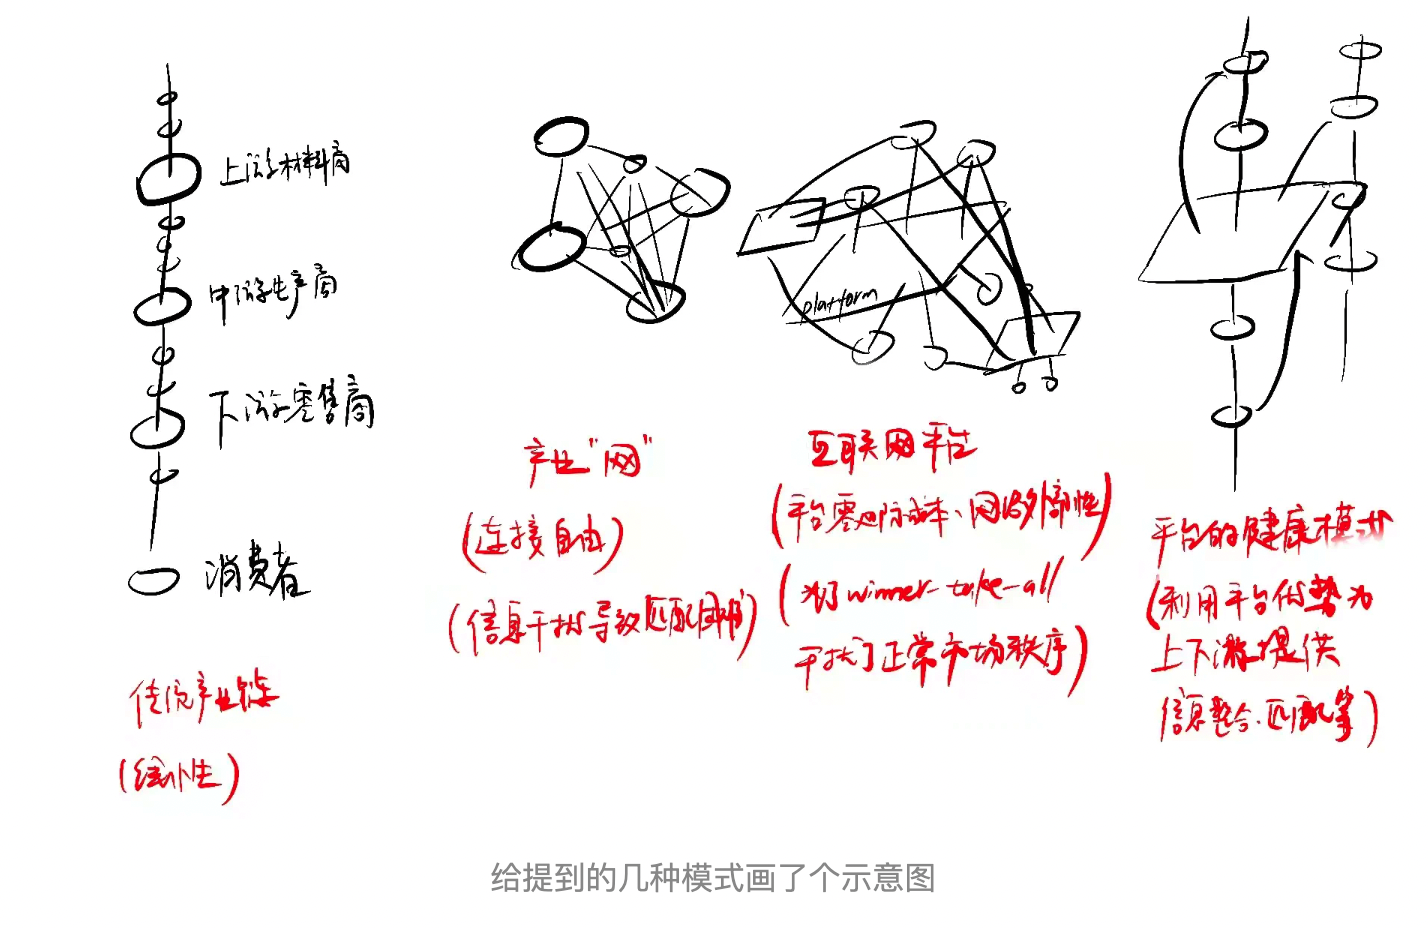 上游材料商
中游生产商
下游零售商
消费者
传统产业链
(线性)
产业“网”
(连接自由)
(信息干扰导致匹配困难)
platform
互联网平台
(平台零边际成本、网络外部性)
(为了winner-take-all
干扰了正常市场秩序)
平台的健康模式
(利用平台优势为
上下游提供
信息整合、匹配等)
给提到的几种模式画了个示意图